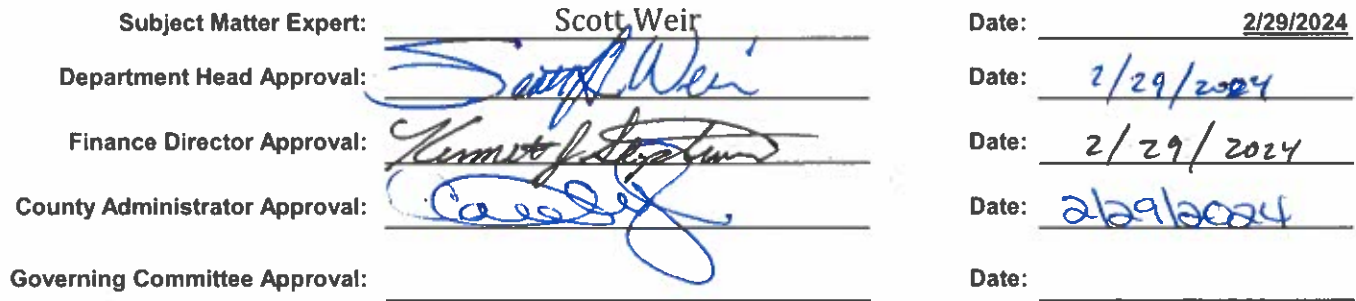 Subject Matter Expert: Scott Weir Date: 2/29/2024
Department Head Approval: Scott Weir Date: 2/29/2024
Finance Director Approval: Date: 2/29/2024
County Administrator Approval: Date: 2/29/2024
Governing Committee Approval: Date: